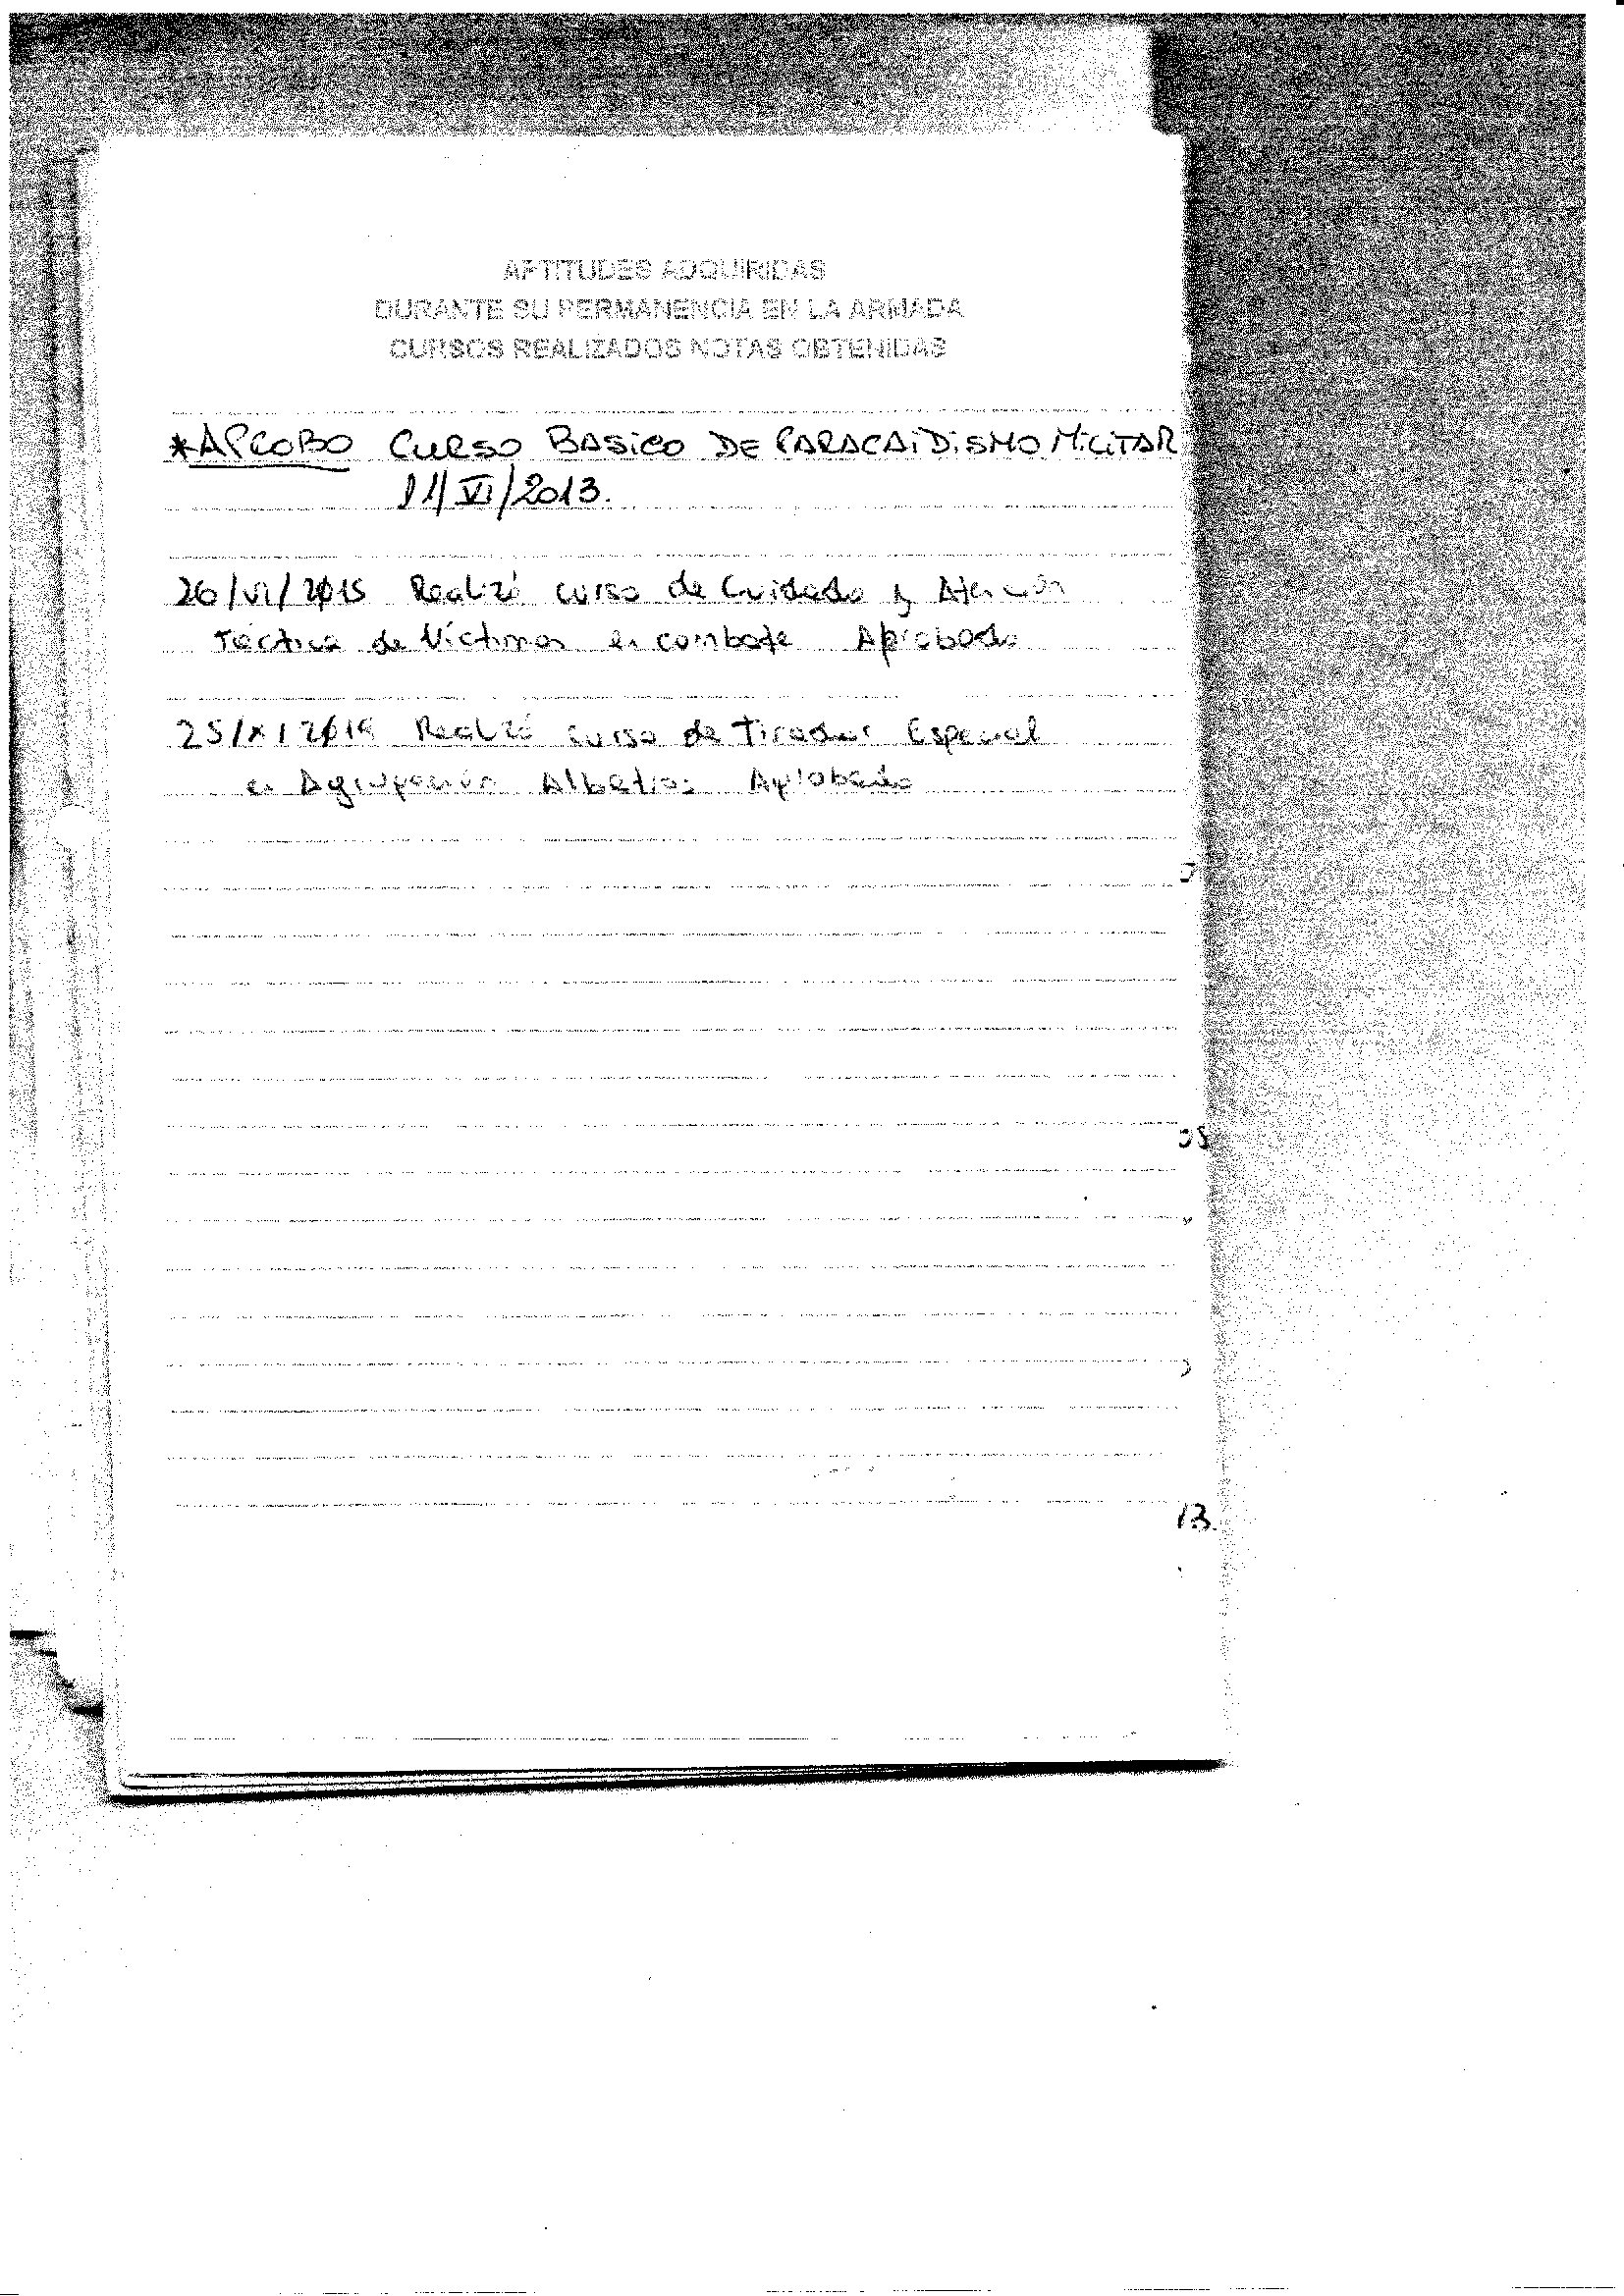 APTITUDES ADQUIRIDAS
DURANTE SU PERMANENCIA EN LA ARMADA
CURSOS REALIZADOS NOTAS OBTENIDAS
*APROBO CURSO BASICO DE PARACAIDISMO MILITAR
11/VI/2013.
26/VI/2015 Realizó curso de Cuidado y Atención
Táctica de Víctimas en combate Aprobado
25/X/ Realizó curso de Tirador Especial
en Agrupación Albatros Aprobado
13.